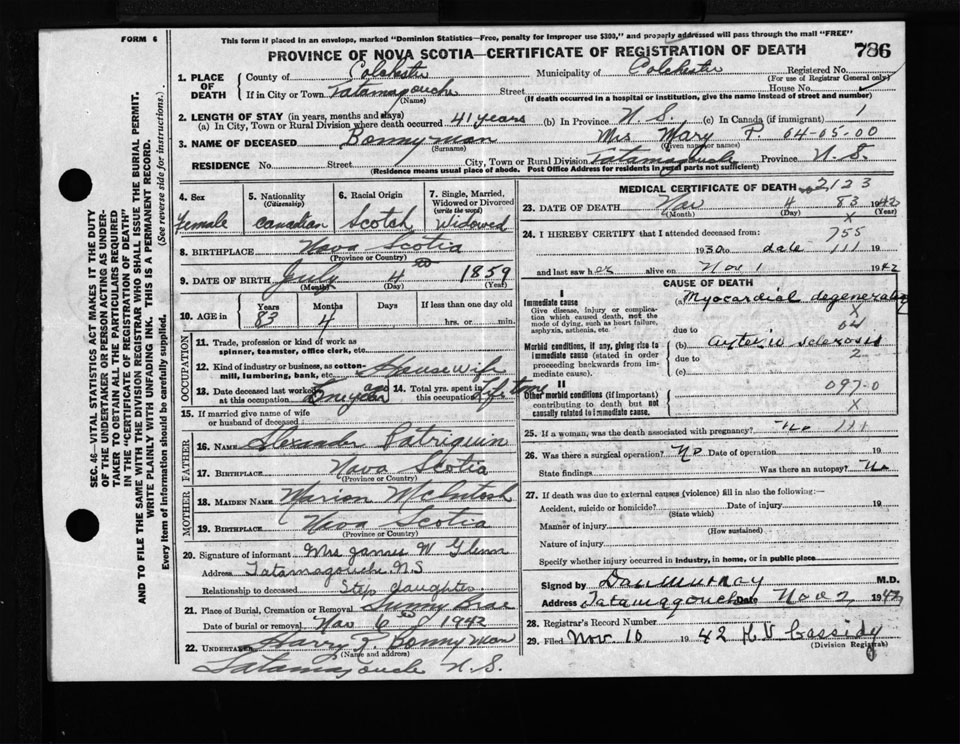 FORM 6
This form if placed in an envelope, marked "Dominion Statistics—Free, penalty for improper use $300," and properly addressed will pass through the mail "FREE"
PROVINCE OF NOVA SCOTIA—CERTIFICATE OF REGISTRATION OF DEATH
786
SEC. 46—VITAL STATISTICS ACT MAKES IT THE DUTY
OF THE UNDERTAKER OR PERSON ACTING AS UNDER-
TAKER TO OBTAIN ALL THE PARTICULARS REQUIRED
IN THE "CERTIFICATE OF REGISTRATION OF DEATH"
AND TO FILE THE SAME WITH THE DIVISION REGISTRAR WHO SHALL ISSUE THE BURIAL PERMIT.
WRITE PLAINLY WITH UNFADING INK. THIS IS A PERMANENT RECORD.
Every item of information should be carefully supplied. (See reverse side for instructions.)
1. PLACE OF DEATH
County of Colchester Municipality of Colchester Registered No.
(For use of Registrar General only)
If in City or Town Tatamagouche Street House No.
(Name) (If death occurred in a hospital or institution, give the name instead of street and number)
2. LENGTH OF STAY (in years, months and days)
(a) In City, Town or Rural Division where death occurred 41 years (b) In Province N.S. (c) In Canada (if immigrant) 1
3. NAME OF DECEASED Bonnyman Mrs Mary P. 04-05-00
(Surname) (Given name or names)
RESIDENCE No. Street City, Town or Rural Division Tatamagouche Province N.S.
(Residence means usual place of abode. Post Office Address for residents in rural parts not sufficient)
4. Sex
female
5. Nationality
(Citizenship)
Canadian
6. Racial Origin
Scotch
7. Single, Married, Widowed or Divorced
(write the word)
Widowed
8. BIRTHPLACE Nova Scotia
(Province or Country)
9. DATE OF BIRTH July 4 1859
(Month) (Day) (Year)
10. AGE in Years Months Days If less than one day old
83 4 hrs. or min.
OCCUPATION
11. Trade, profession or kind of work as
spinner, teamster, office clerk, etc.
12. Kind of industry or business, as cotton-
mill, lumbering, bank, etc. Housewife
13. Date deceased last worked at this occupation One year ago
14. Total yrs. spent in this occupation Life time
15. If married give name of wife
or husband of deceased
FATHER
16. NAME Alexander Patriquin
17. BIRTHPLACE Nova Scotia
(Province or Country)
MOTHER
18. MAIDEN NAME Marion McIntosh
19. BIRTHPLACE Nova Scotia
(Province or Country)
20. Signature of informant Mrs James W Glenn
Address Tatamagouche N.S
Relationship to deceased Step daughter
21. Place of Burial, Cremation or Removal
Date of burial or removal Nov 6 1942
22. UNDERTAKER Harry R. Bonnyman
(Name and address)
Tatamagouche N.S.
MEDICAL CERTIFICATE OF DEATH 2123
23. DATE OF DEATH Nov 4 83 1942
(Month) (Day) (Year)
x
24. I HEREBY CERTIFY that I attended deceased from: 755
1930 to date 111 19
and last saw her alive on Nov 1 1942
CAUSE OF DEATH
I
Immediate cause
Give disease, injury or complica-
tion which caused death, not the
mode of dying, such as heart failure,
asphyxia, asthenia, etc.
(a) Myocardial degeneration
x
04
due to
Morbid conditions, if any, giving rise to
immediate cause (stated in order
proceeding backwards from im-
mediate cause).
(b) arterio sclerosis
due to 2
(c)
II
Other morbid conditions (if important)
contributing to death but not
causally related to immediate cause.
097-0
x
25. If a woman, was the death associated with pregnancy? No 111
26. Was there a surgical operation? No Date of operation 19
State findings Was there an autopsy? No
27. If death was due to external causes (violence) fill in also the following:—
Accident, suicide or homicide? Date of injury 19
(State which)
Manner of injury
(How sustained)
Nature of injury
Specify whether injury occurred in industry, in home, or in public place
Signed by Dan Murray M.D.
Address Tatamagouche Date Nov 2 1942
28. Registrar's Record Number
29. Filed Nov 10 1942 H V Cassidy
(Division Registrar)